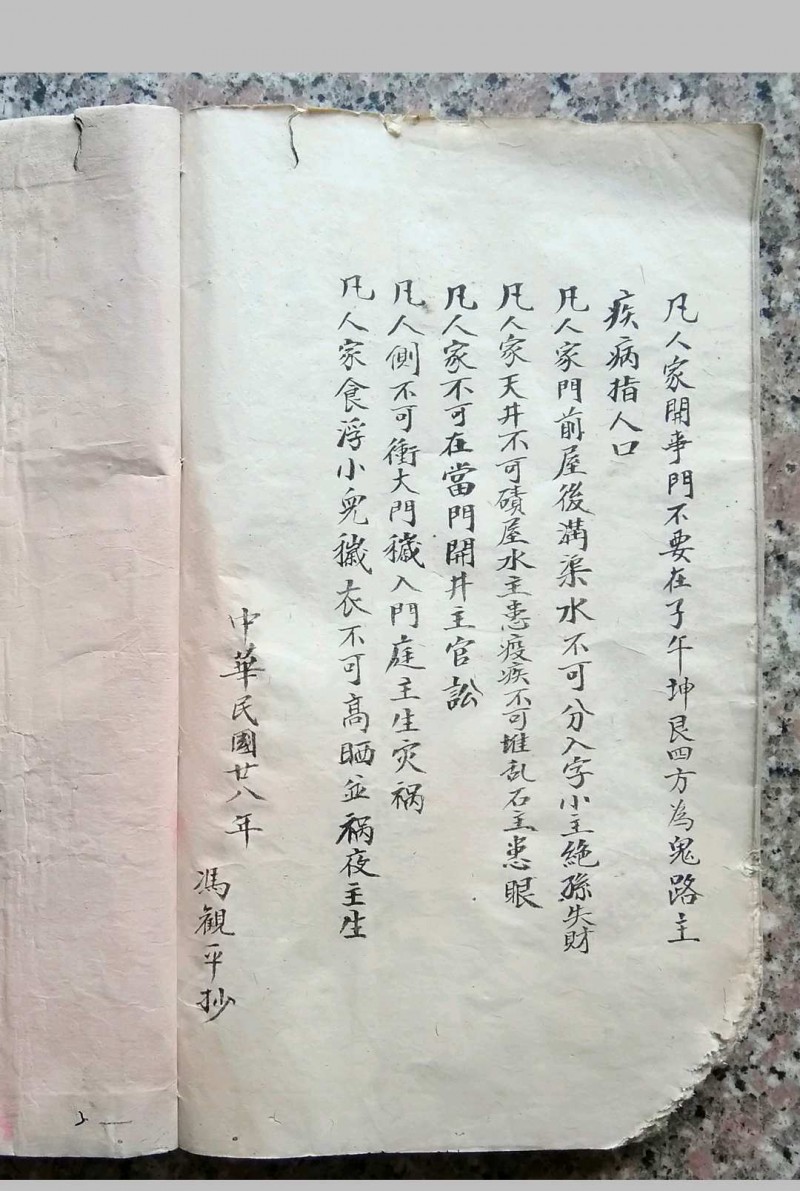 凡人家開事門不要在子午坤艮四方為鬼路主
疾病指人口
凡人家門前屋後溝渠水不可分入字小主絶孫失財
凡人家天井不可磧屋水主患疫疾不可堆乱石主患眼
凡人家不可在當門開井主官訟
凡人側不可衝大門穢入門庭主生灾禍
凡人家食浮小兒穢衣不可高晒並禍夜主生
中華民國廿八年
馮觀平抄